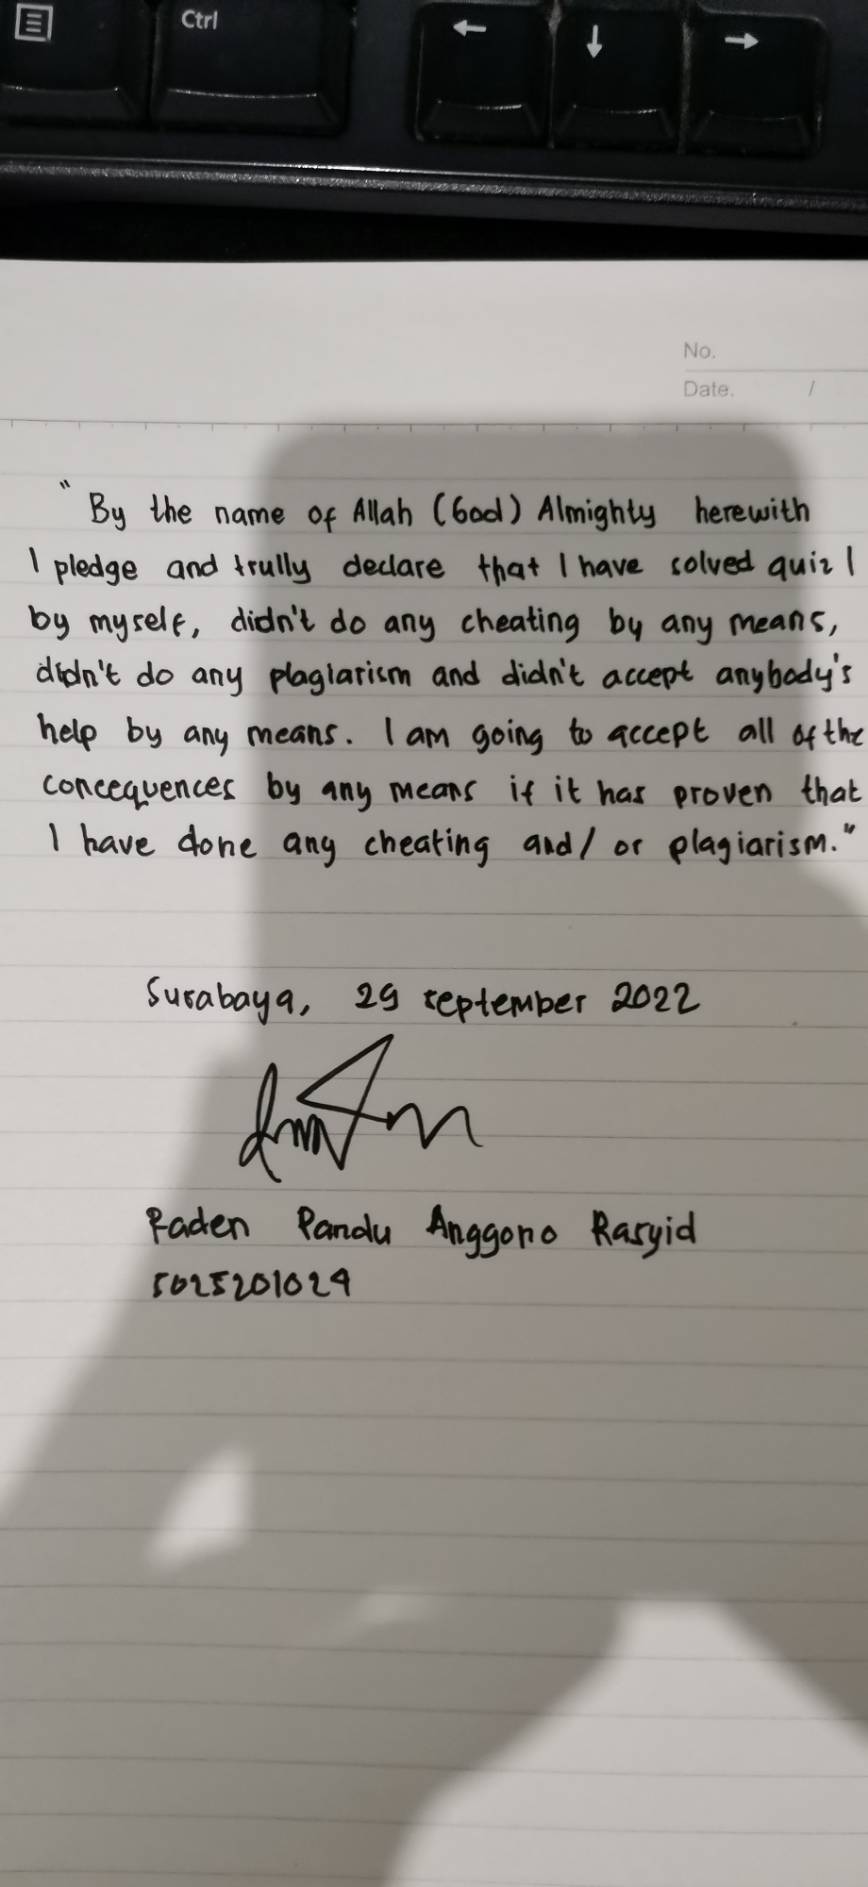 Ctrl
←
↓
→
No.
Date. /
"By the name of Allah (God) Almighty herewith
I pledge and trully declare that I have solved quiz 1
by myself, didn't do any cheating by any means,
didn't do any plagiarism and didn't accept anybody's
help by any means. I am going to accept all of the
concequences by any means if it has proven that
I have done any cheating and/or plagiarism."
Surabaya, 29 september 2022
Raden Pandu Anggono Rasyid
5025201024